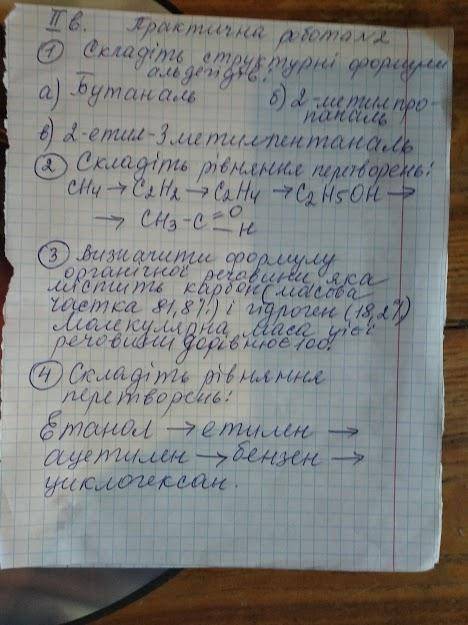 II в. Практична робота №2
① Складіть структурні формули
альдегідів:
а) Бутаналь б) 2-метилпро-
паналь
в) 2-етил-3метилпентаналь
② Складіть рівняння перетворень:
CH4 → C2H2 → C2H4 → C2H5OH →
→ CH3-C=O
-H
③ Визначити формулу
органічної речовини яка
містить карбон (масова
частка 81,8%) і гідроген (18,2%)
Молекулярна маса цієї
речовини дорівнює 100.
④ Складіть рівняння
перетворень:
Етанол → етилен →
ацетилен → бензен →
циклогексан.